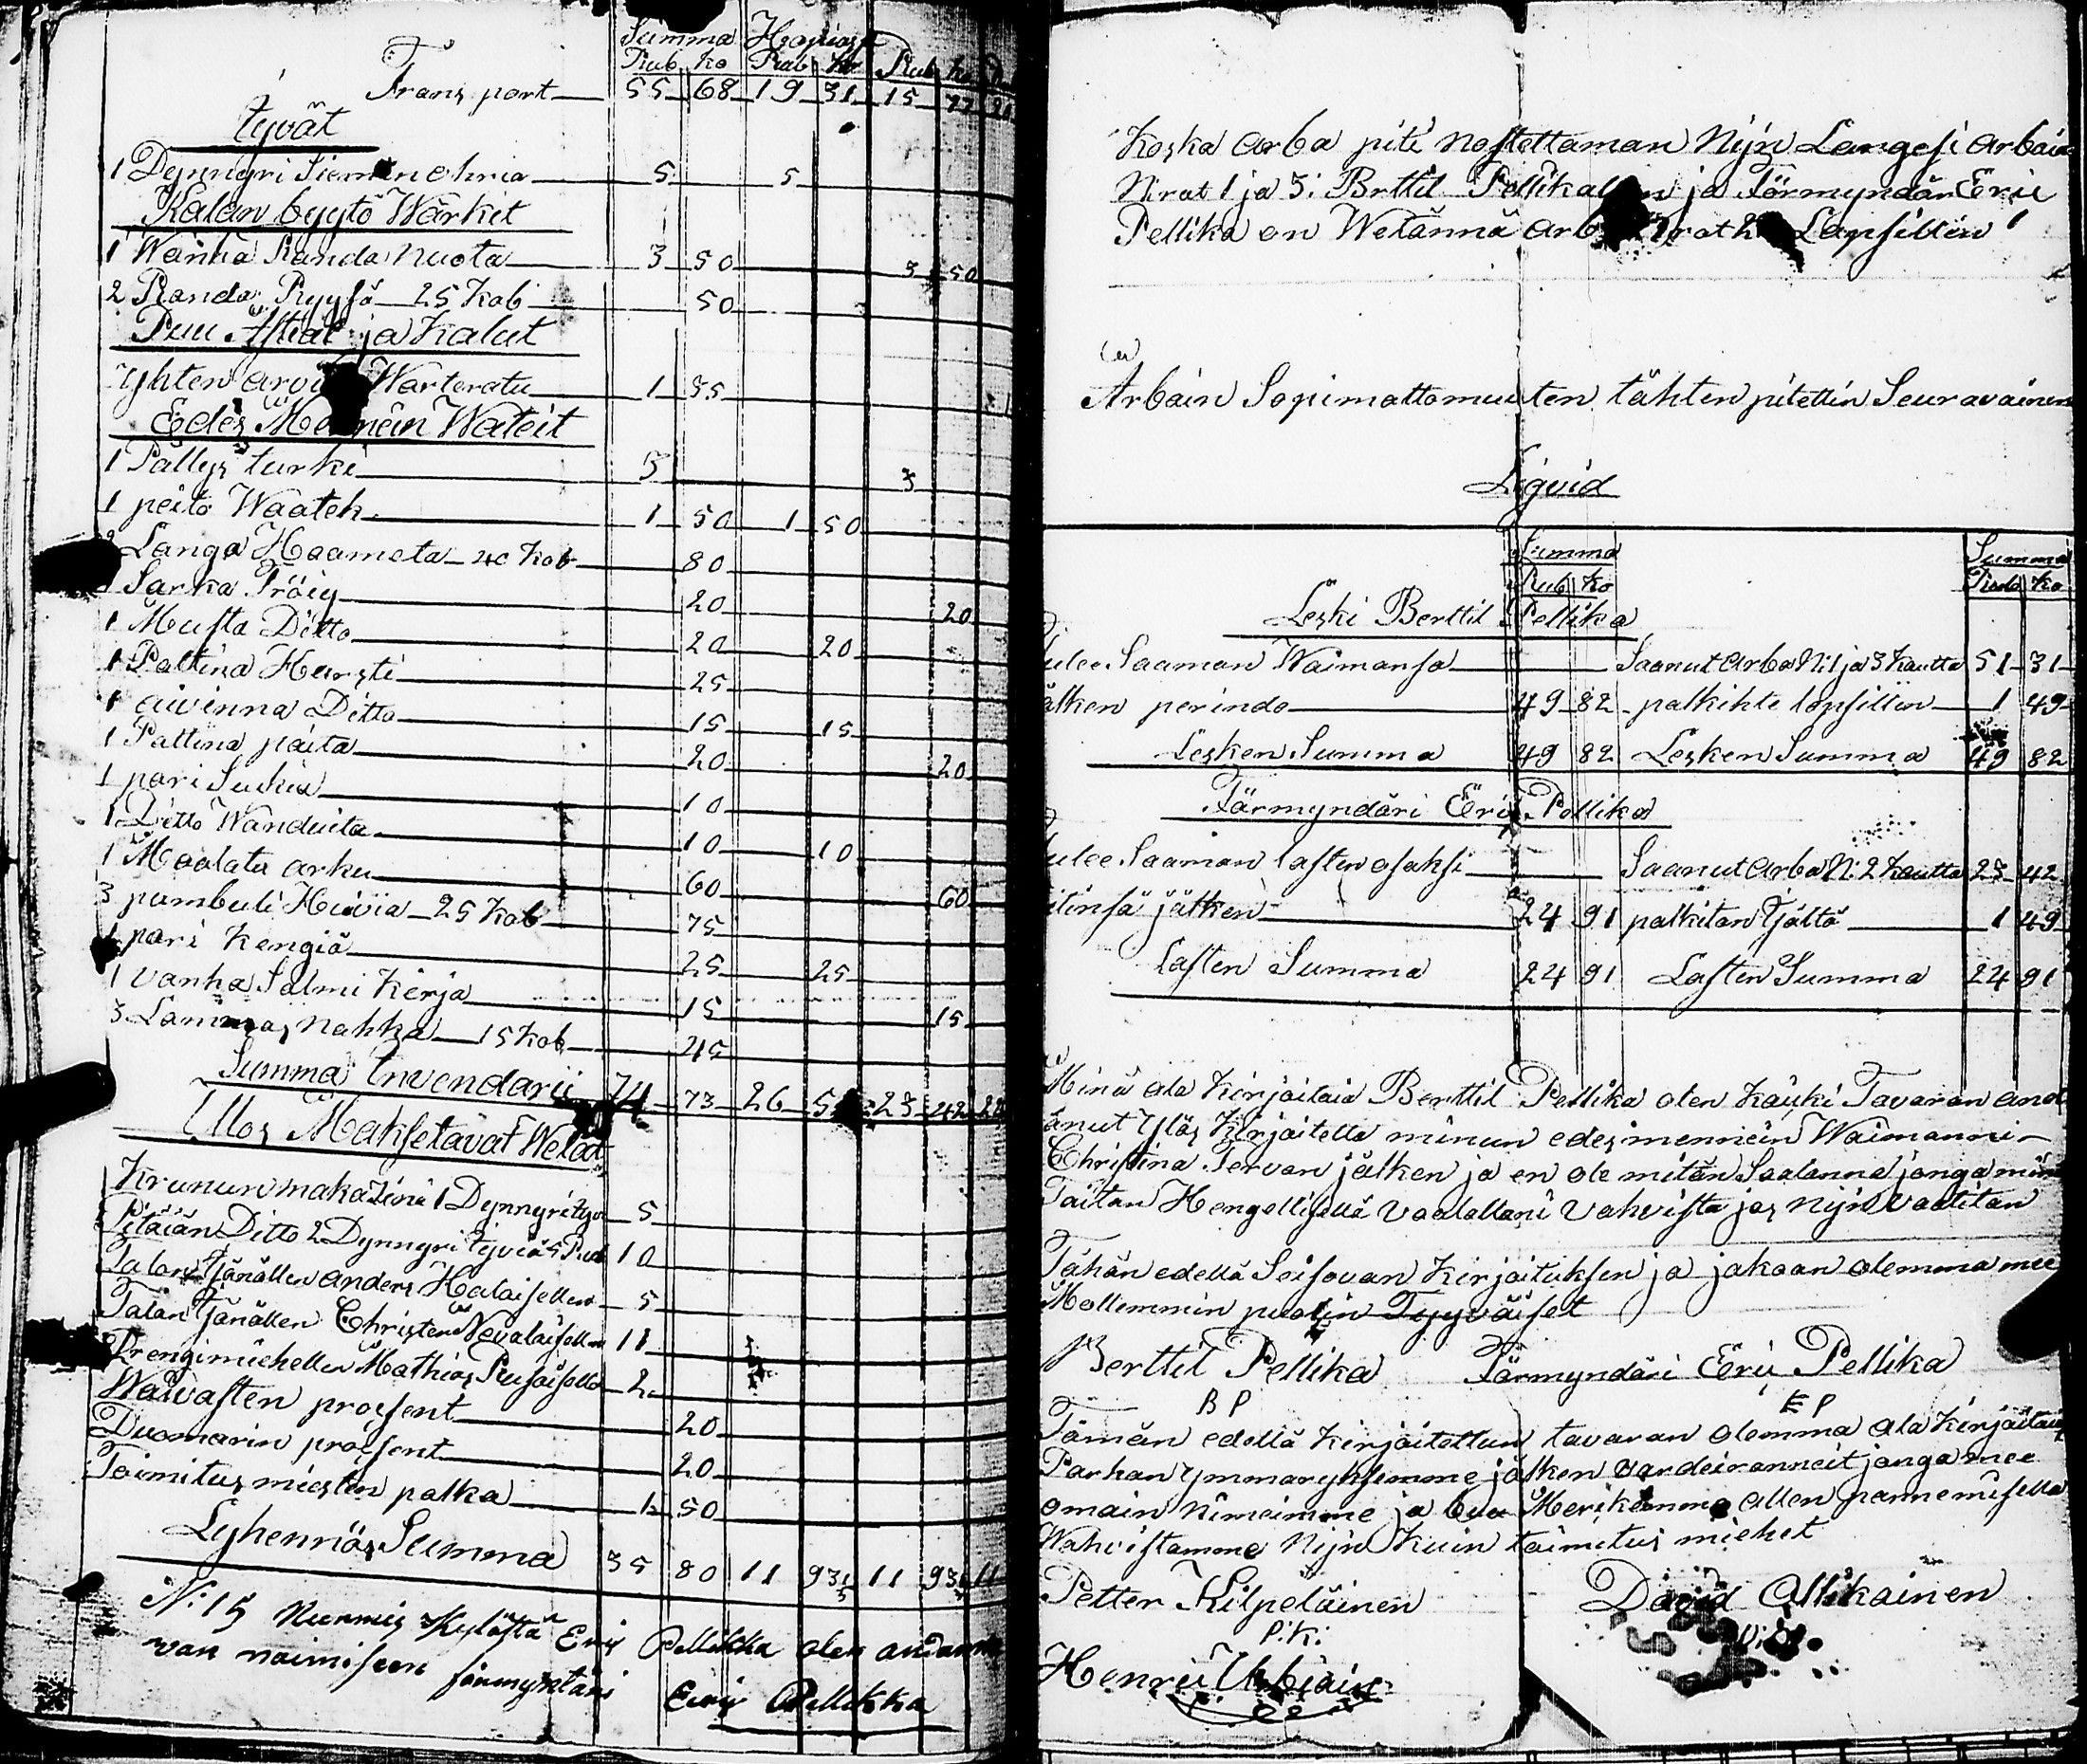 Summa Hopiasa
Rub ko Rub ko Rub ko
Trans port 55 68 19 31 15 77
tyvät
1 Dynnyri Siemen ohria 5 5
Kalan byytö Wärkit
1 Wanha Randa Nuota 3 50 3 50
2 Randa Ryysä 25 Kob 50
Puu Astiat ja Kalut
Yhten arvu Warteratu 1 35
Edes Mennein Wateit
1 Pällys turki 3 3
1 peitö Waateh 1 50 1 50
2 Langa Haameta 40 Kob 80
1 Sarka Tröiy 20 20
1 Musta Ditto 20 20
1 Paltina Hursti 25
1 aivinna Ditto 15 15
1 Paltina paita 20 20
1 pari Sukia 10
1 Ditto Wanduita 10 10
1 Maalatu arku 60 60
3 pumbuli Huivia 25 Kob 75
1 pari Kengiä 25 25
1 vanha Salmi Kirja 15 15
3 Lammas nahka 15 Kob 45
Summa Invendarii 74 73 26 5 23 42
Ulos Maksetavat Welat
Krunun makasinii 1 Dynnyri 5
Pitäiän Ditto 2 Dynnyri tyviä 5 Rub 10
Talan Tjänällen anders Halaisellen 5
Talan Tjänällen Christer Nevalaisellen 11
Rrengimiehellen Mathias 2
Waivasten prossent 20
Duomarin prossent 20
Toimitus miesten palka 1 50
Lyhennös Summa 35 80 11 93 11 93 11
N: 15 Nurmis Kylästä Eriy Pellikka olen andanu
van naimisen förmyntäri
Eriy Pellikka
Koska Arba piti Nostettaman Nijn Langesi arbain
Nirat 1 ja 3: Brttil Pellikallen ja Förmyndär Eric
Pellika on Wetännä Lapsillen
Arbain Sopimattomuuten tähten pitettin Seuravainen
Liqvid
Summa Summa
Rub ko Rub ko
Leski Berttil Pellika
Tulee Saaman Waimonsa Saanut Arba N:1 ja 3 kautta 51 31
jälken perindo 49 82 palkihte lapsillen 1 49
Lesken Summa 49 82 Lesken Summa 49 82
Färmyndäri Eric Pellika
Tulee Saaman lasten osaksi Saanut Arba N: 2 kautta 23 42
äitinsä jälken 24 91 palkitan Isältä 1 49
Lasten Summa 24 91 Lasten Summa 24 91
Minä ala kirjoitaia Berttil Pellika olen Kaiki Tavaran and
anut Ylös Kirjoitella minun edesmennein Waimanni
Christina Tervan jälken ja en ole mitän Saalanna janga minä
Taitan Hengellisellä Vaalallani Vahvista jos nijn vaatitan
Tähän edellä Seisovan Kirjoituksen ja jakoon olemma mee
Mollemmin puolin Tyyväiset
Berttil Pellika Färmyndäri Eric Pellika
B P E P
Tämän edellä Kirjoitettun tavaran olemma ala kirjoitaiat
Parhan ymmaryksemme jälken vardeiranneit janga mee
omain Nimeimme ja buu Merikimme allen pannemisella
Wahvistamme Nijn Kuin toimitus miehet
Petter Kilpeläinen David Ollikainen
P: K:
Henric